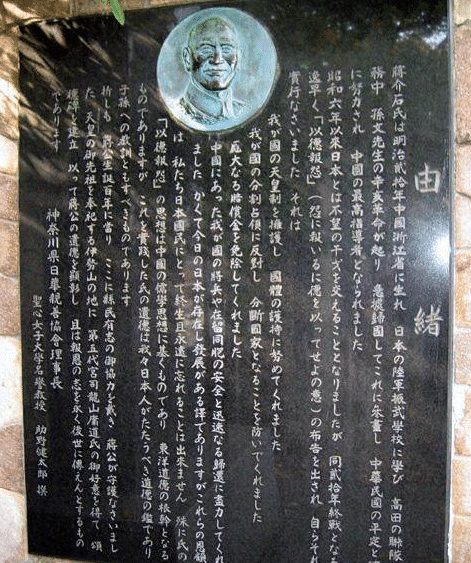 由緒
蔣介石氏は明治貳拾年中國浙江省に生れ 日本の陸軍振武學校に學び 高田の聯隊
務中 孫文先生の辛亥革命が起り 急據歸國してこれに參畫し 中華民國の平定と
に努力され 中國の最高指導者となられました
昭和六年以來日本とは不幸の干戈を交えることとなりましたが 同貳拾年終戰となる
逸早く「以德報怨」(怨に報いるに德を以ってせよの意)の布告を出され 自らそれ
實行なさいました それは
我が國の天皇制を擁護し 國體の護持に努めてくれました
我が國の分割占領に反對し 分斷國家となることを防いでくれました
厖大なる賠償金を免除してくれました
中國にあった我が國の將兵や在留同胞の安全と迅速なる歸還に盡力してくれ
ました かくて今日の日本が存在し發展がある譯でありますがこれらの恩顧
は 私たち日本國民にとって終生且永遠に忘れることは出來ません 殊に氏の
「以德報怨」の思想は中國の儒學思想に基くものであり 東洋道德の根幹となる
ものでありますが これを實踐した氏の遺德は我々日本人がたたうべき道德の鑑であり
子孫への教訓ともすべきものであります
折しも 蔣公生誕百年に當り ここに縣民有志の御協力を戴き 蔣公が守護なさいまし
た 天皇の御先祖を奉祀する伊勢山の地に 第五代宮司龍山庸道氏の御好意を得て 頌
德碑を建立 以って蔣公の遺德を顯彰し 且は報恩の志を永く後世に傳えんとするもの
であります
神奈川縣日華親善協會理事長
聖心女子大學名譽教授 助野健太郎 撰